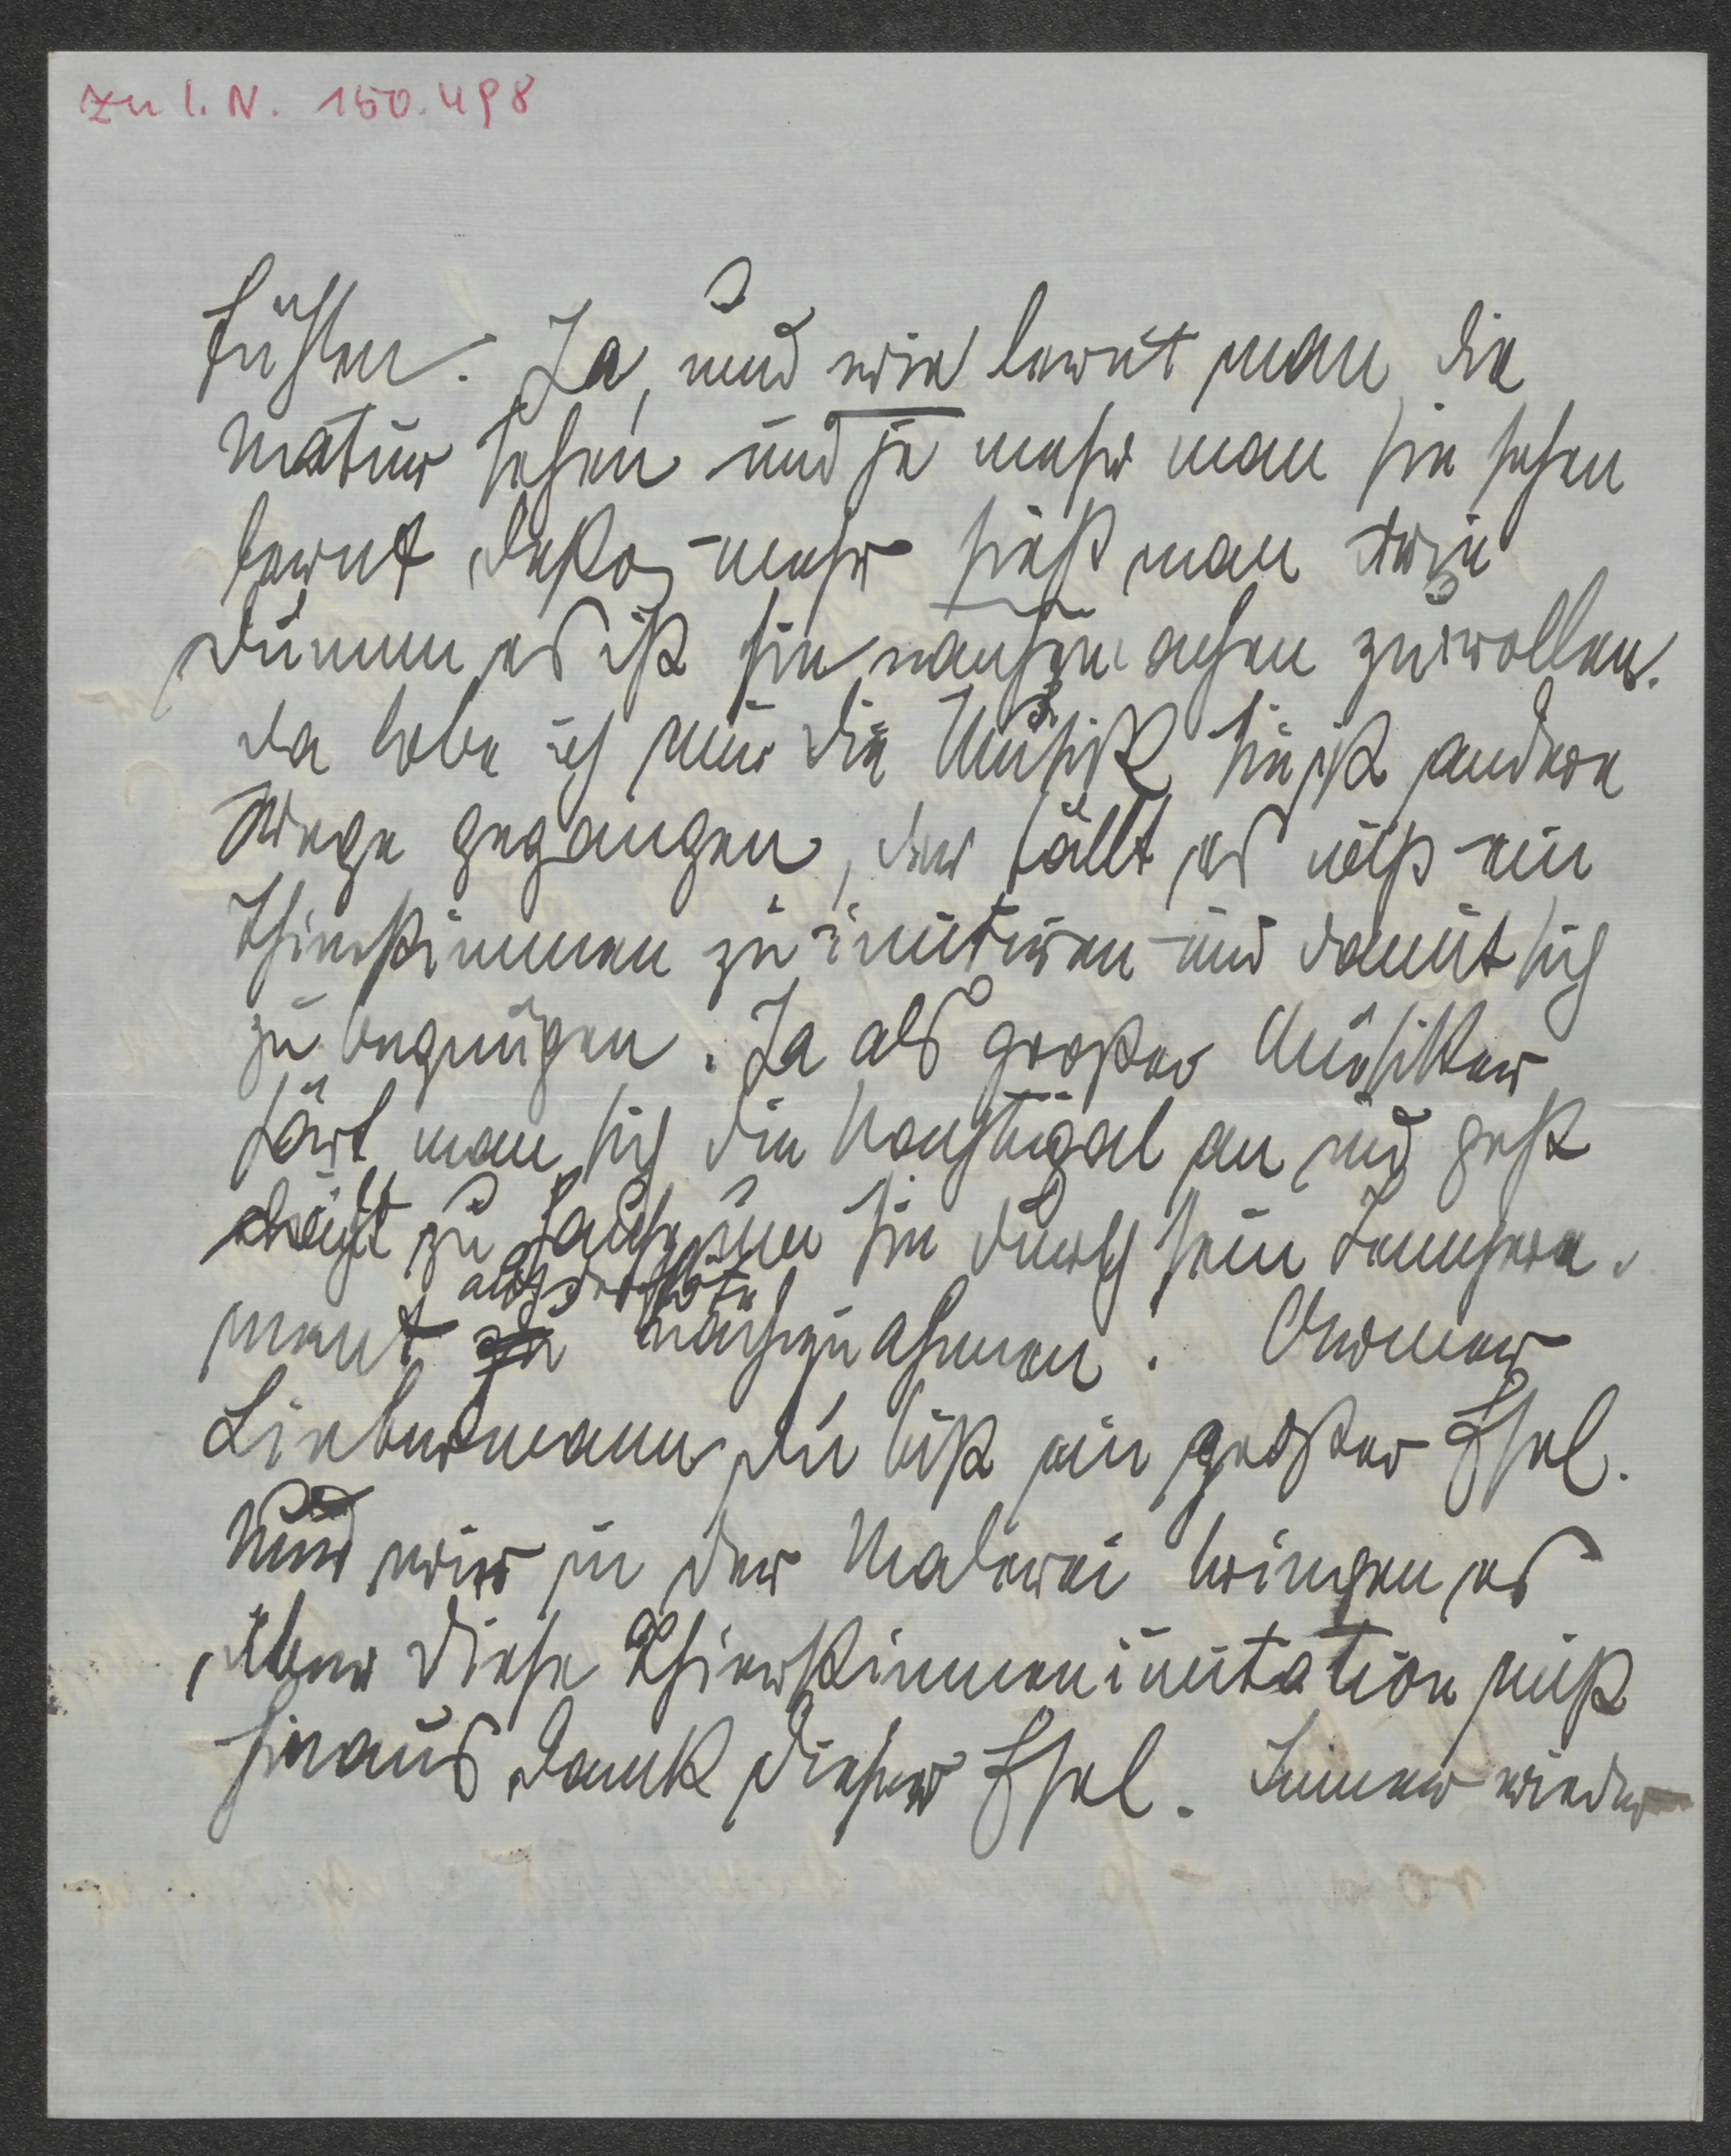 zu I. N. 150.498
fühlen. Ja, und wie lernt man die
Natur sehen und je mehr man sie sehen
lernt desto mehr sieht man wie
dumm es ist sie nachmachen zu wollen.
da lobe ich mir die Musik, sie ist andere
Wege gegangen, der fällt es nicht ein
Thierstimmen zu imitiren und damit sich
zu begnügen. Ja als großer Musiker
hört man sich die Nachtigal an und geht
nach Hause um sie durch sein Tempera-
ment auf der Flöte nachzuahmen. Armer
Liebermann du bist ein großer Esel.
Und wir in der Malerei bringen es
über diese Thierstimmenimitation nicht
hinaus dank dieser Esel. Immer wieder